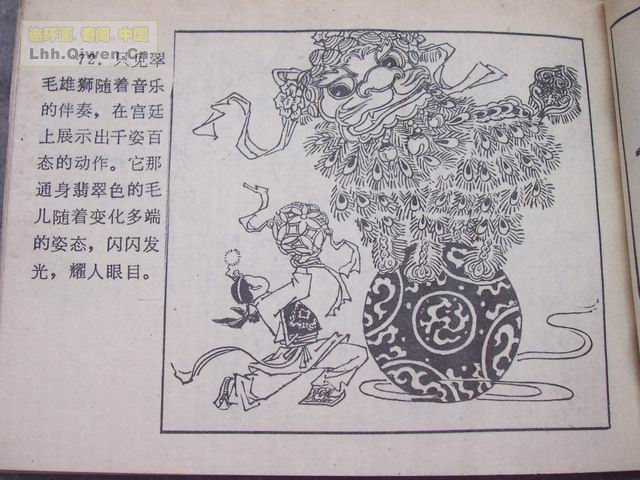 连环画.奇闻.中国
Lhh.Qiwen.Cn
72. 只见翠
毛雄狮随着音乐
的伴奏，在宫廷
上展示出千姿百
态的动作。它那
通身翡翠色的毛
儿随着变化多端
的姿态，闪闪发
光，耀人眼目。